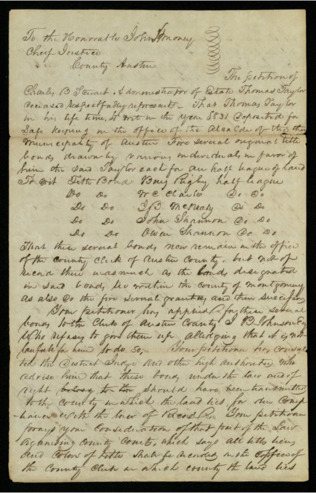 To the Honorable John H Money
Chief Justice
County Austin
The petition of
Charles B Stewart Administrator of Estate Thomas Taylor
deceased respectfully represents. That Thomas Taylor
in his life time, to wit in the year 1831 deposited for
safe keeping in the office of the Alcalde of this the
Municipality of Austin Five several original title
bonds drawn by various individuals in favor of
him the said Taylor each for one half league of land
To wit Title Bond Benj Rigby half league
Do Do W C Clark Do Do
Do Do Do Do
Do Do John Shannon Do Do
Do Do Owen Shannon Do Do
That these several bonds now remain in the office
of the county clerk of Austin County but not of
record there inasmuch as the lands designated
in said bonds, lie within the county of Montgomery
as also do the five several grantors and their
Your petitioner has applied for these several
bonds to the Clerk of Austin County Johnson Esq
Who refuses to give them up alledging that it is not
lawful for him to do so, Your petitioner has consulted
the District Judge and other high authority who
advise him that these bonds under the law and of
right should have been transmitted
to the County in which the land lies for due
with the law of Record. Your petitioner
prays your consideration of that part of the Law
organizing County Courts, which says All title bonds
and Color of title shall be recorded in the offices of
the County Clerk in which county the land lies